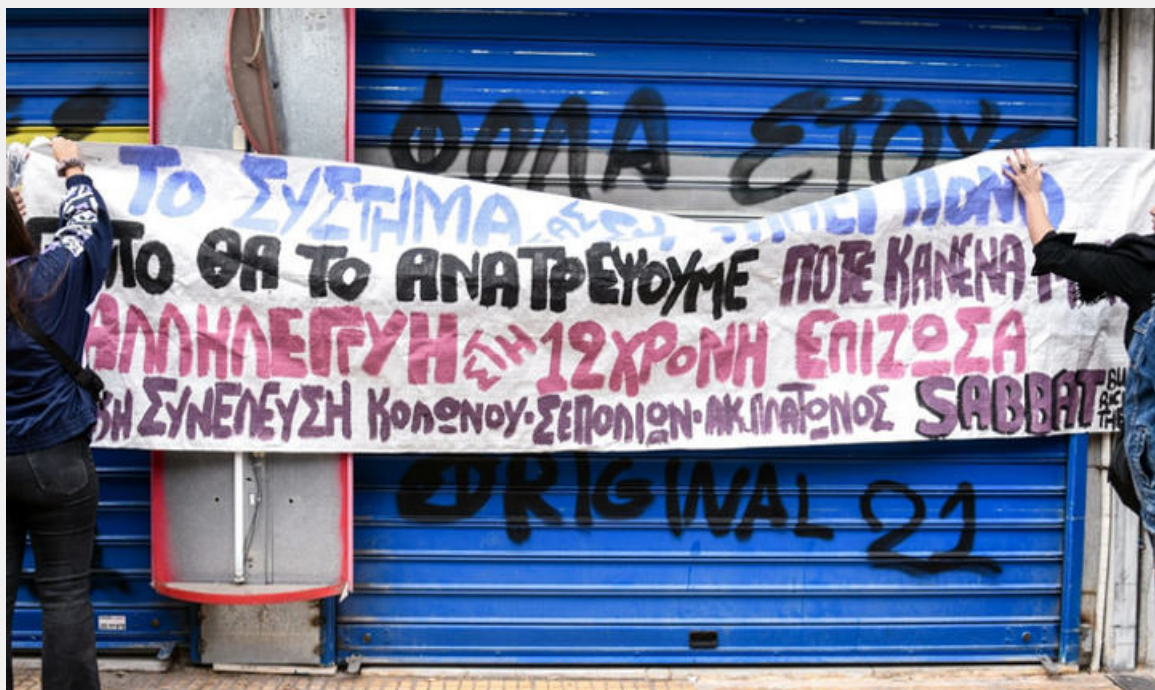 ΦΟΛΑ ΣΤΟΥΣ
ΤΟ ΣΥΣΤΗΜΑ ΠΟΝΟ
ΘΑ ΤΟ ΑΝΑΤΡΕΨΟΥΜΕ ΠΟΤΕ ΚΑΝΕΝΑ
ΑΛΛΗΛΕΓΓΥΗ ΣΤΗ 12ΧΡΟΝΗ ΕΠΙΖΩΣΑ
ΣΥΝΕΛΕΥΣΗ ΚΟΛΩΝΟΥ·ΣΕΠΟΛΙΩΝ·ΑΚ.ΠΛΑΤΩΝΟΣ SABBAT
ORIGINAL 21